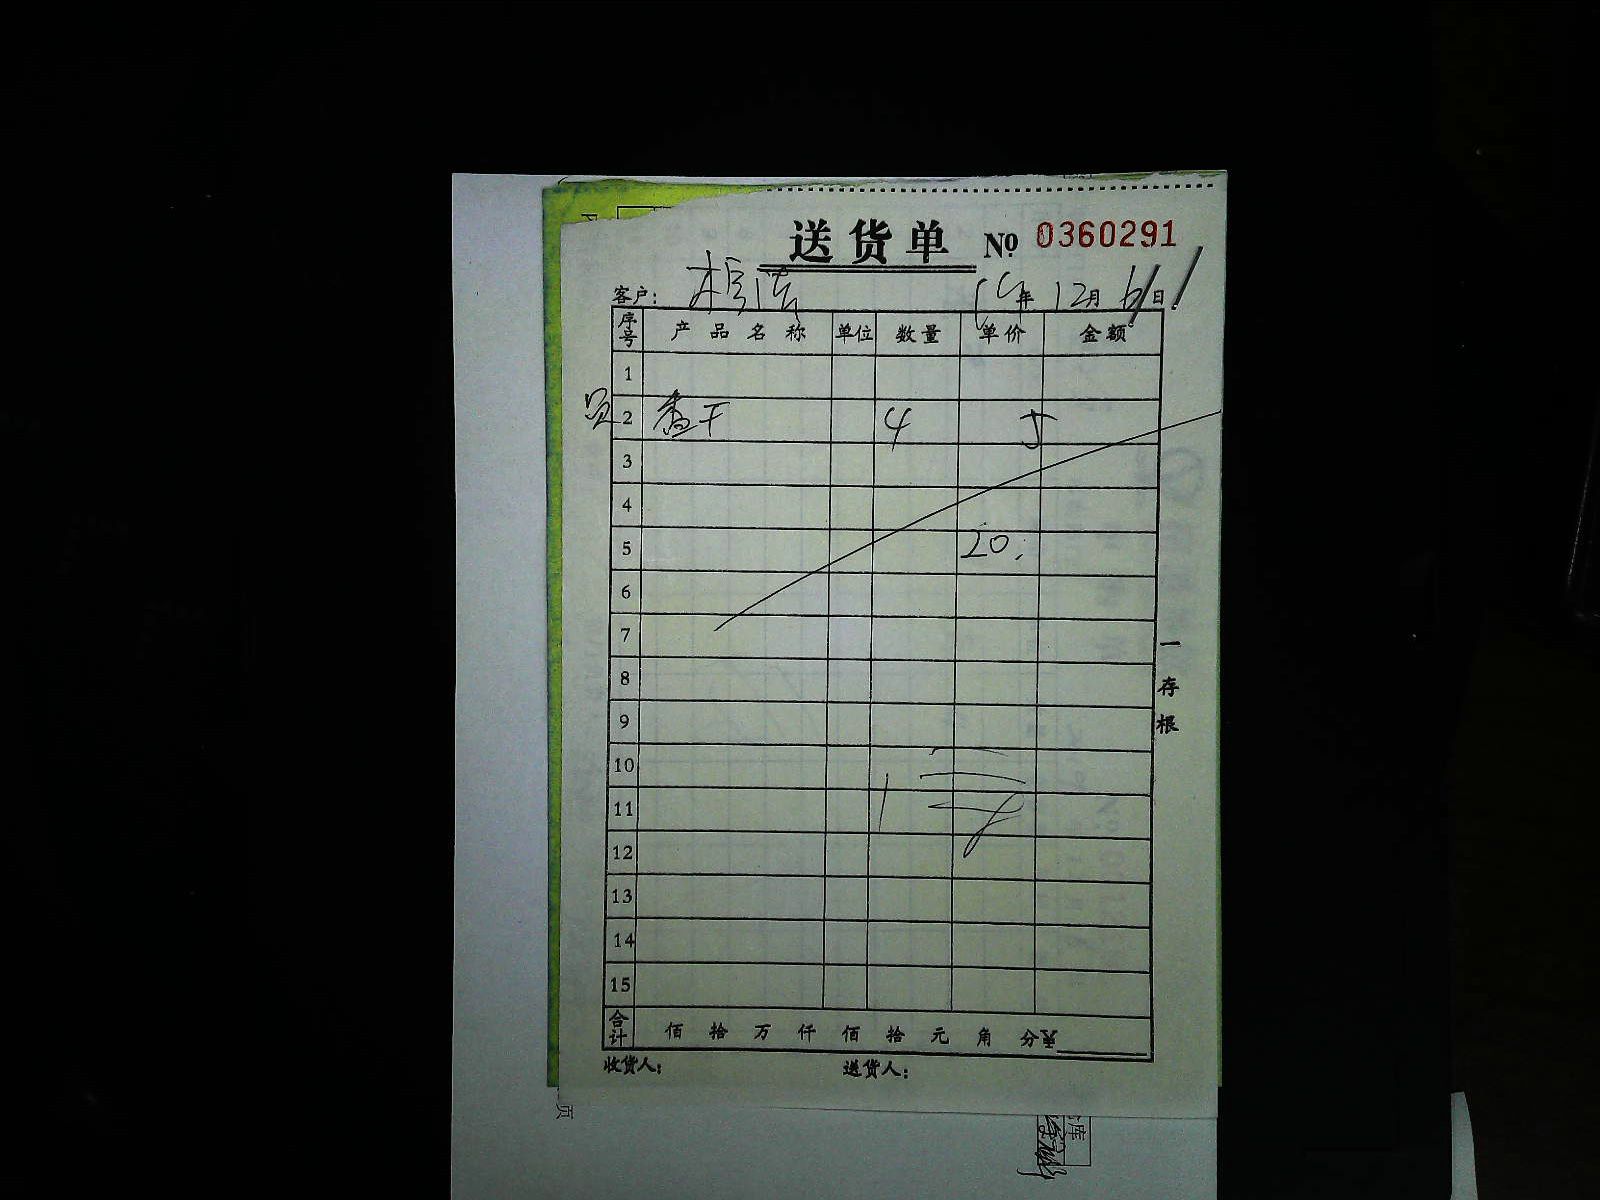 送货单 № 0360291
客户: 年 12月 日
序号 产品名称 单位 数量 单价 金额
1
2 香干 4 5
3
4
5 20.
6
7
8
9
10
11
12
13
14
15
一存根
合计 佰 拾 万 仟 佰 拾 元 角 分 ¥
收货人: 送货人:
页
库